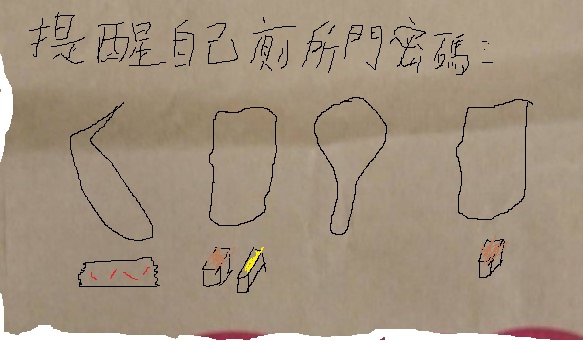 提醒自己廁所門密碼：